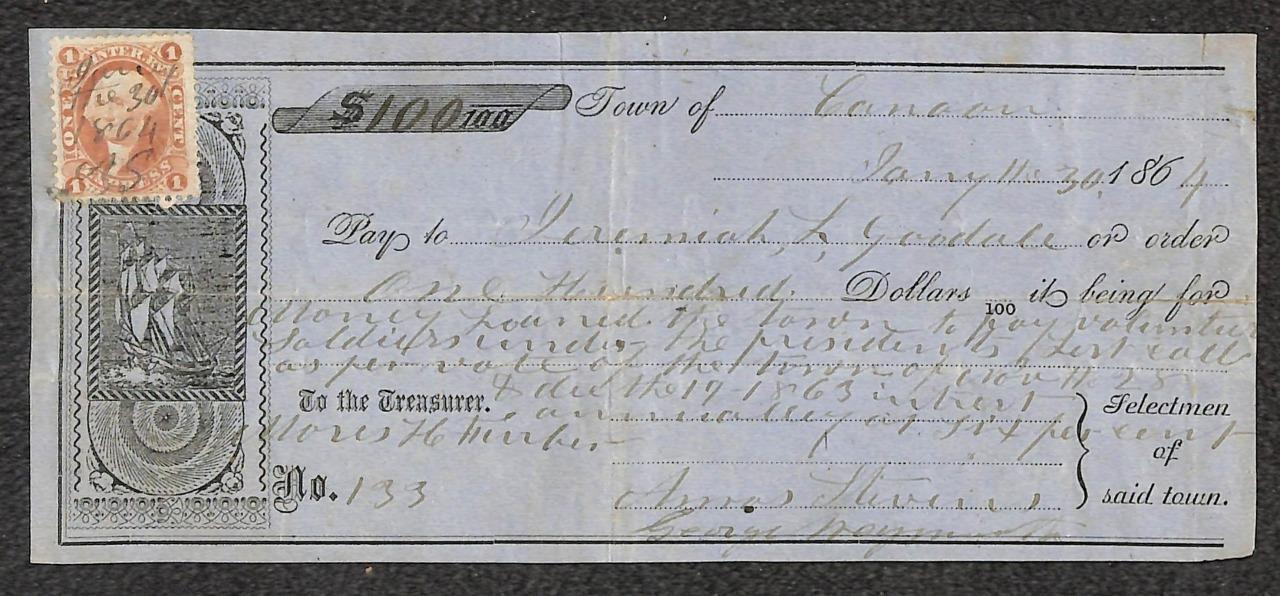 1 INTER. REV. 1
ONE CENT
30
1864
AS
1 EXPRESS 1
$100/100 Town of Canaan
Jany the 30, 1864
Pay to Jeremiah L Goodale or order
One Hundred Dollars 100 it being for
Money Loaned the town to pay volunteer
Soldiers under the presidents last call
as per vote of the town of Nov the 28
& dec the 17 1863 intrest
To the Treasurer. annualley at six per cent
No. 133
Amos Stevens
George Weymouth
Selectmen
of
said town.